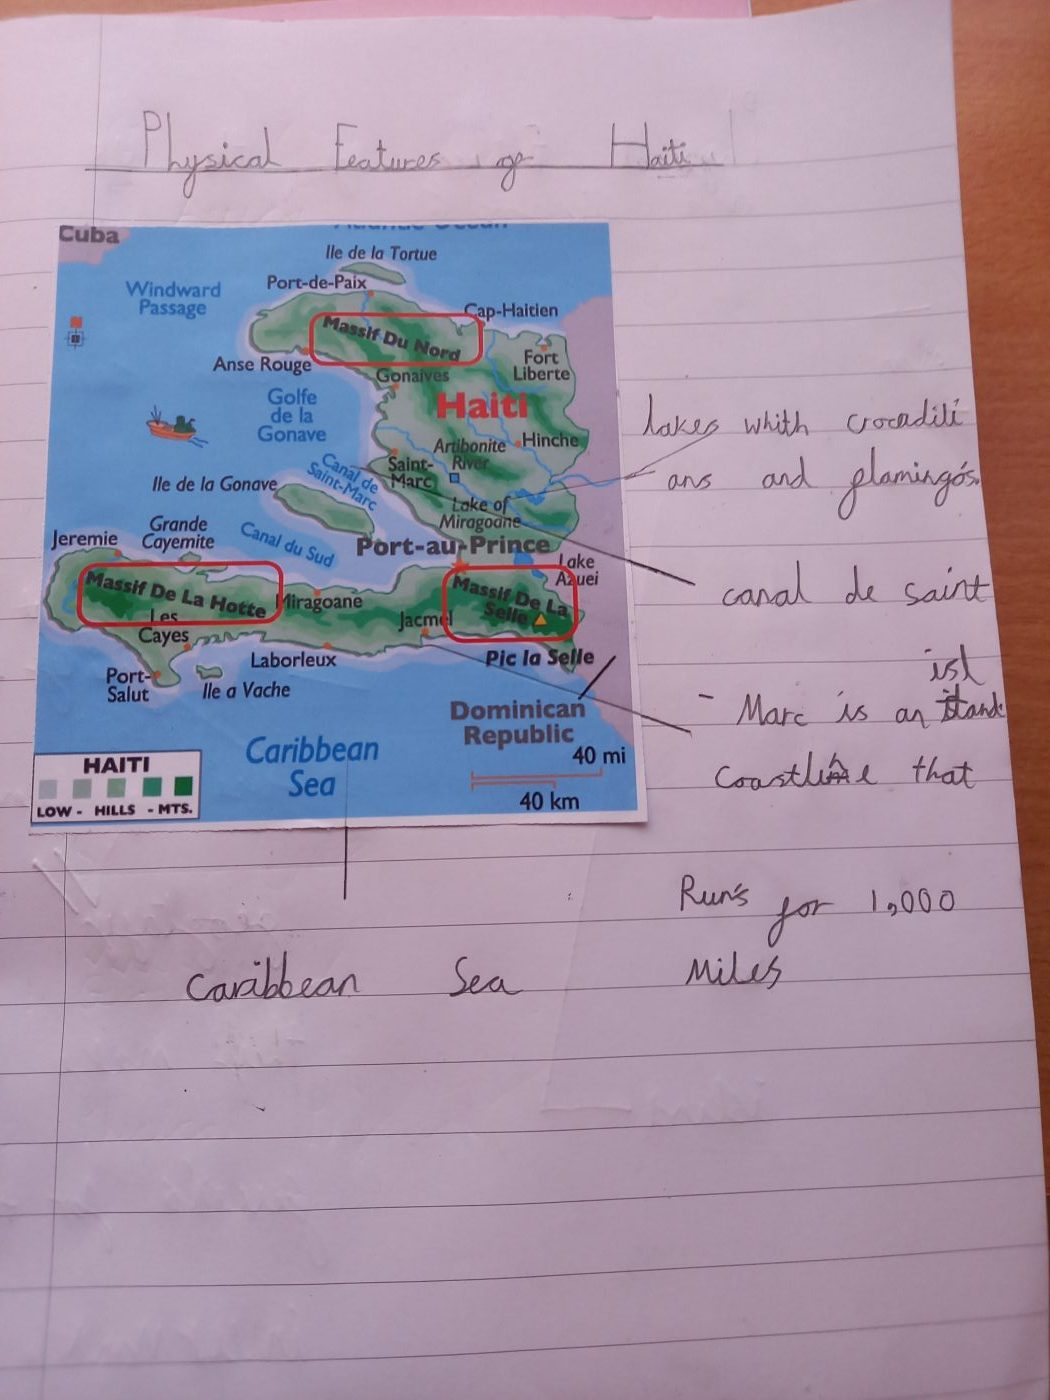 Physical Features of Haiti
Cuba
Atlantic Ocean
Ile de la Tortue
Windward
Passage
Port-de-Paix
Cap-Haitien
Massif Du Nord
Anse Rouge
Fort
Liberte
Gonaives
Golfe
de la
Gonave
Haiti
Artibonite
River
Hinche
Saint-
Marc
Canal de
Saint-Marc
Ile de la Gonave
Lake of
Miragoane
Grande
Cayemite
Jeremie
Canal du Sud
Port-au-Prince
Lake
Azuei
Massif De La Hotte
Miragoane
Massif De La
Selle
Les
Cayes
Jacmel
Laborleux
Pic la Selle
Port-
Salut
Ile a Vache
Dominican
Republic
Caribbean
Sea
40 mi
40 km
HAITI
LOW - HILLS - MTS.
lakes whith crocadili
ans and flamingo's.
canal de saint
isl
- Marc is an itand
coastline that
Run's for 1,000
Miles
Caribbean Sea